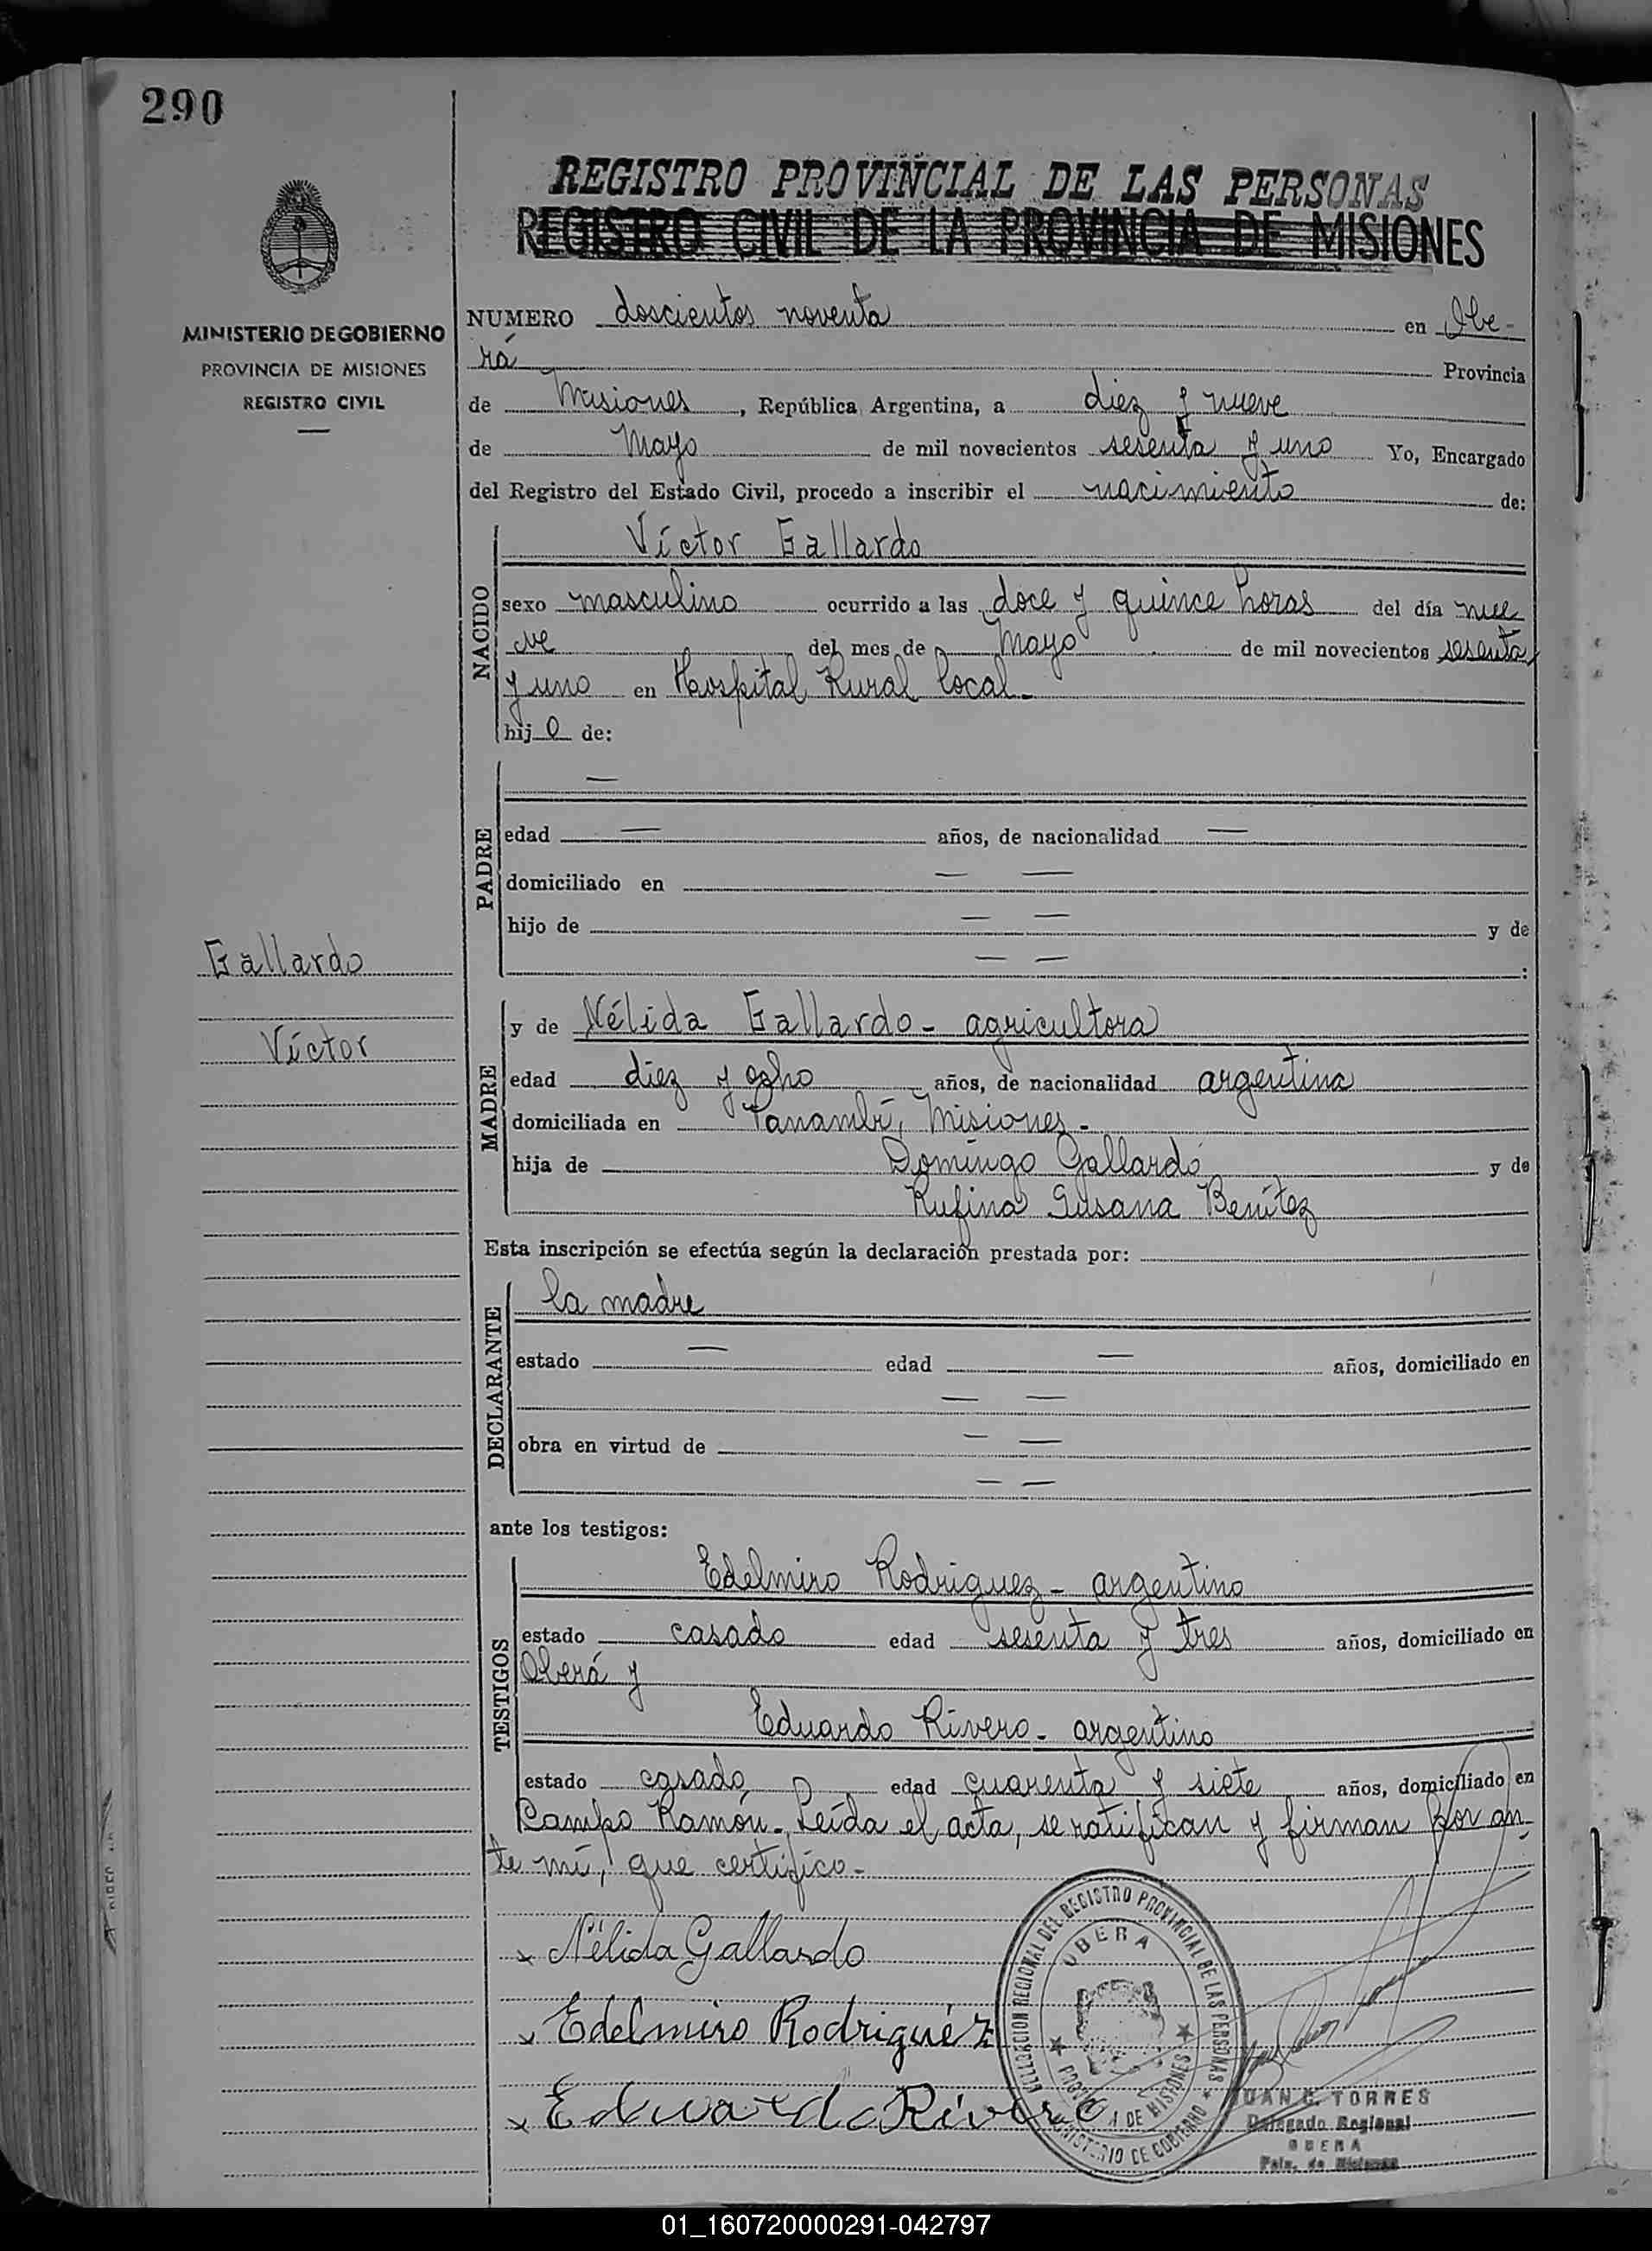 290
MINISTERIO DE GOBIERNO
PROVINCIA DE MISIONES
REGISTRO CIVIL
REGISTRO PROVINCIAL DE LAS PERSONAS
REGISTRO CIVIL DE LA PROVINCIA DE MISIONES
NUMERO doscientos noventa en Obe-
rá Provincia
de Misiones, República Argentina, a diez y nueve
de Mayo de mil novecientos sesenta y uno Yo, Encargado
del Registro del Estado Civil, procedo a inscribir el nacimiento de:
NACIDO
Víctor Gallardo
sexo masculino ocurrido a las doce y quince horas del día nue
ve del mes de Mayo de mil novecientos sesenta
y uno en Hospital Rural local-
hijo de:
PADRE
—
edad — años, de nacionalidad —
domiciliado en — —
hijo de — — y de
— — :
Gallardo
Víctor
MADRE
y de Nélida Gallardo- agricultora
edad diez y ocho años, de nacionalidad argentina
domiciliada en Panambí, Misiones-
hija de Domingo Gallardo y de
Rufina Susana Benítez
Esta inscripción se efectúa según la declaración prestada por:
DECLARANTE
la madre
estado — edad — años, domiciliado en
— —
obra en virtud de — —
— —
ante los testigos:
TESTIGOS
Edelmiro Rodriguez- argentino
estado casado edad sesenta y tres años, domiciliado en
Oberá y
Eduardo Rivero- argentino
estado casado edad cuarenta y siete años, domiciliado en
Campo Ramón- Leída el acta, se ratifican y firman por an-
te mí, que certifico-
x Nélida Gallardo
x Edelmiro Rodriguéz
x Eduardo Rivero
DELEGACION REGIONAL DEL REGISTRO PROVINCIAL DE LAS PERSONAS
OBERA
PROVINCIA DE MISIONES
MINISTERIO DE GOBIERNO
JUAN C. TORRES
Delegado Regional
OBERA
Pcia. de Misiones
01_160720000291-042797